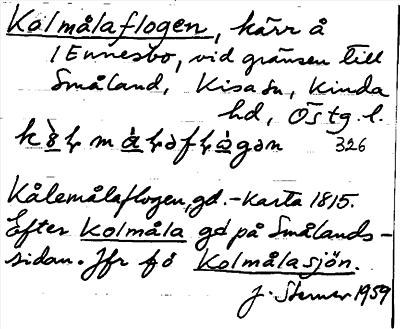 Kolmålaflogen, kärr å
/Ennesbo, vid gränsen till
Småland, Kisa sn, Kinda
hd, Östg. l.
326
Kålemålaflogen, gd. - karta 1815.
Efter Kolmåla gd på Smålands-
sidan. Jfr fö Kolmålasjön.
J. Sterner 1959